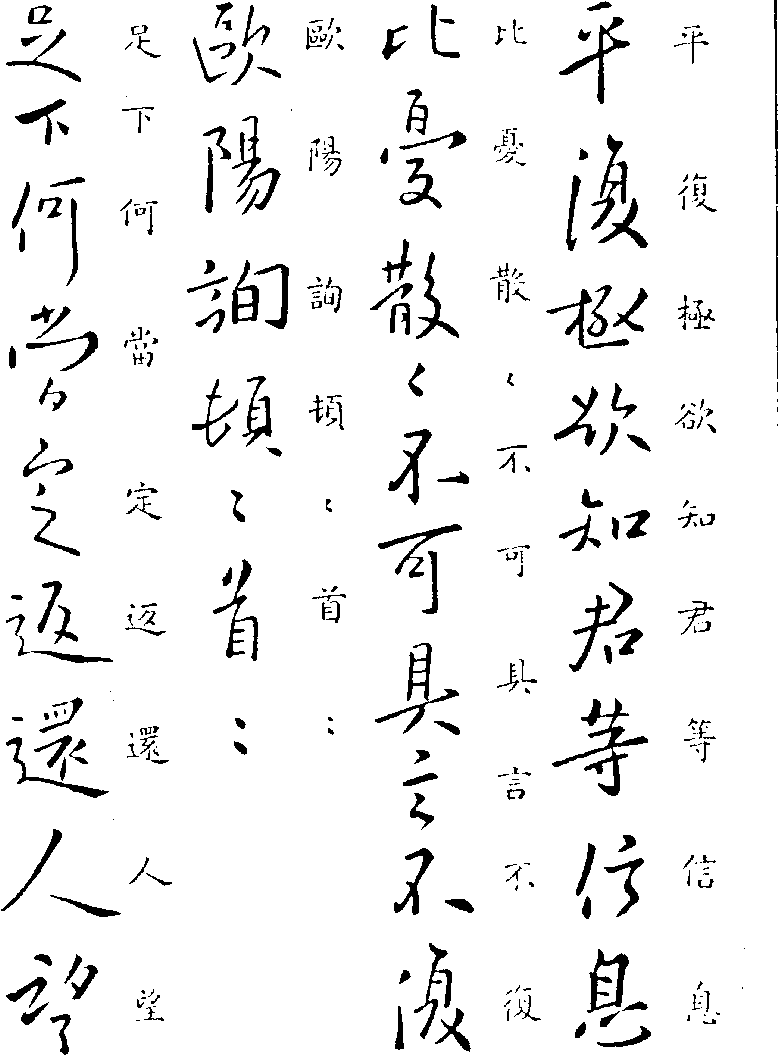 平復極欲知君等信息
平復極欲知君等信息
比憂散〻不可具言不復
比憂散〻不可具言不復
歐陽詢頓〻首〻
歐陽詢頓〻首〻
足下何當定返還人望
足下何當定返還人望